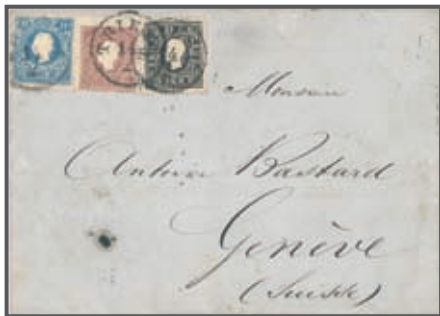 Monsieur
Antoine Bastard
Genève
(Suisse)